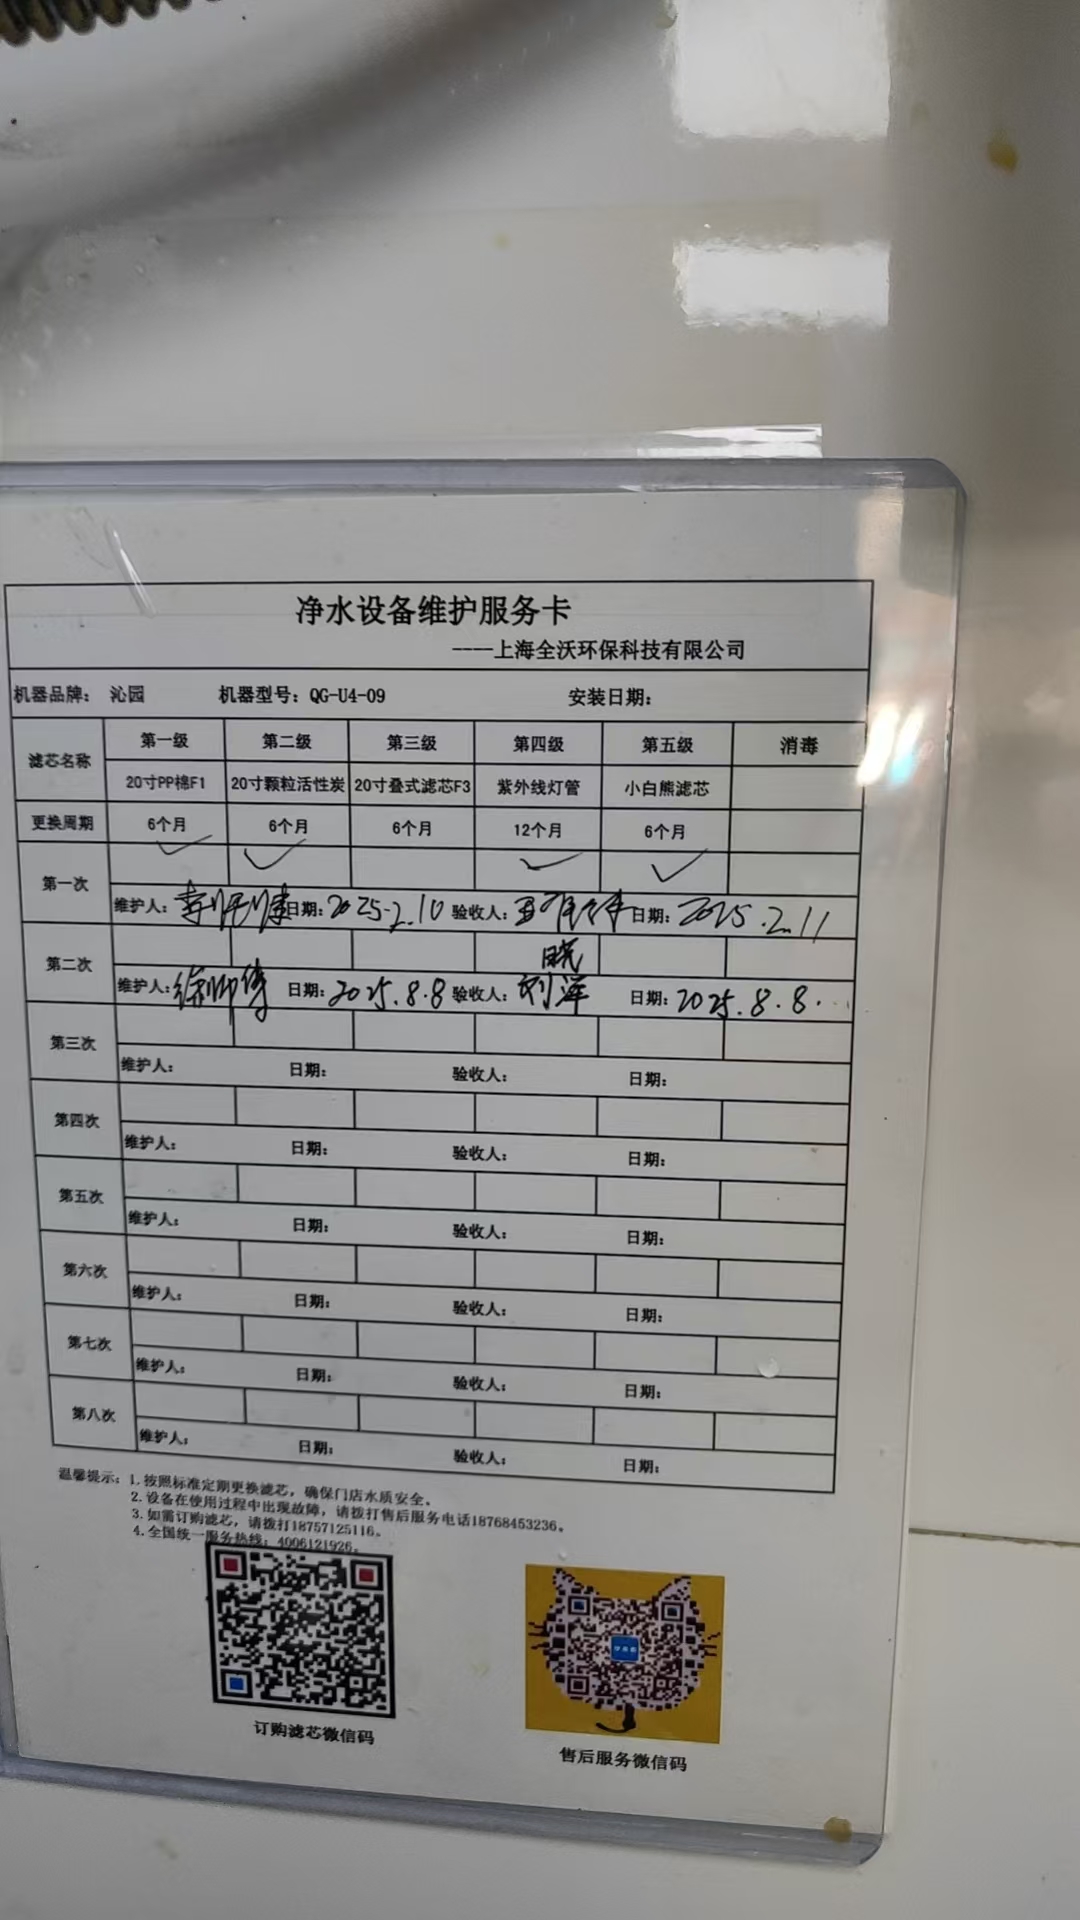 净水设备维护服务卡
----上海全沃环保科技有限公司
机器品牌： 沁园 机器型号：QG-U4-09 安装日期：
滤芯名称 第一级 第二级 第三级 第四级 第五级 消毒
20寸PP棉F1 20寸颗粒活性炭 20寸叠式滤芯F3 紫外线灯管 小白熊滤芯
更换周期 6个月 6个月 6个月 12个月 6个月
第一次 ✓ ✓ ✓ ✓
维护人： 日期：2025.2.10 验收人： 日期：2025.2.11
第二次
维护人：徐师傅 日期：2025.8.8 验收人：刘洋 日期：2025.8.8.
第三次
维护人： 日期： 验收人： 日期：
第四次
维护人： 日期： 验收人： 日期：
第五次
维护人： 日期： 验收人： 日期：
第六次
维护人： 日期： 验收人： 日期：
第七次
维护人： 日期： 验收人： 日期：
第八次
维护人： 日期： 验收人： 日期：
温馨提示：1.按照标准定期更换滤芯，确保门店水质安全。
2.设备在使用过程中出现故障，请拨打售后服务电话18768453236。
3.如需订购滤芯，请拨打18757125116。
4.全国统一服务热线：4006121926。
订购滤芯微信码
售后服务微信码